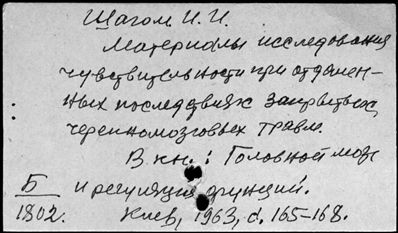 Шагом И. И.
Материалы исследования
чувствительности при отдален-
ных последствиях закрытых
черепномозговых травм.
В кн.: Головной мозг
Б и регуляция функций.
1802. Киев, 1963, с. 165-168.